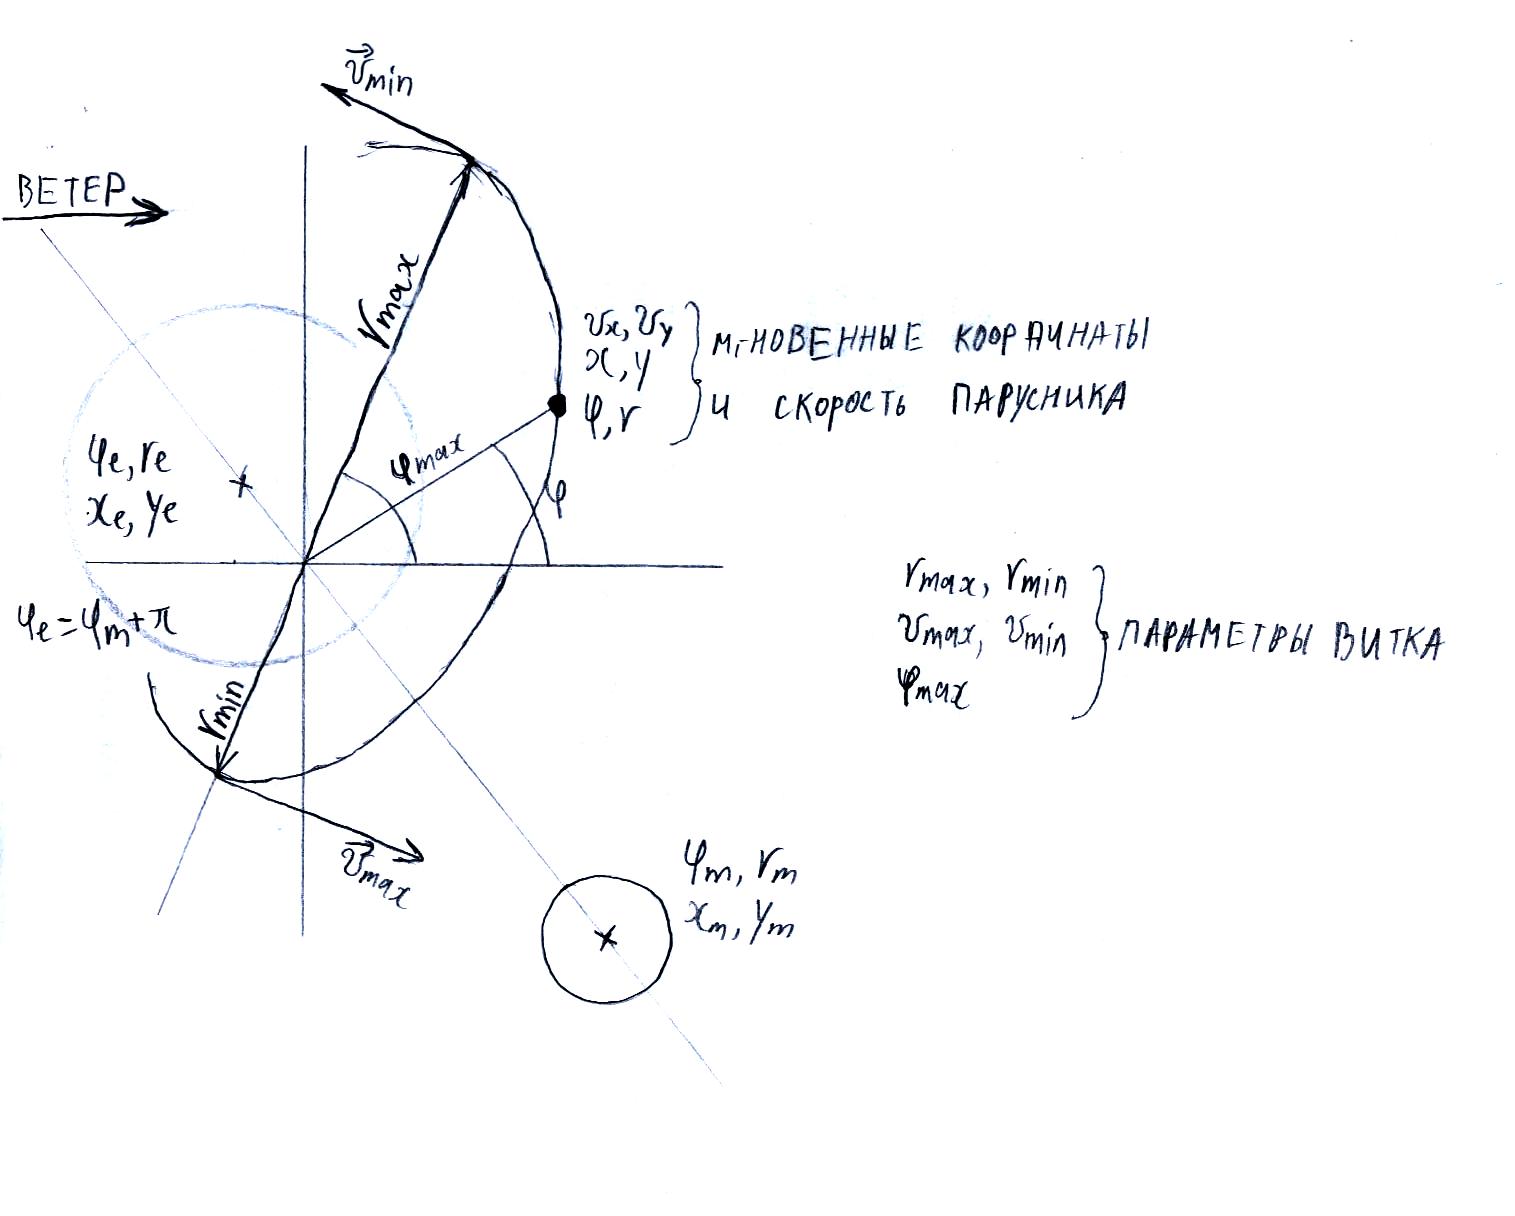 v⃗min
ВЕТЕР
rmax
vx, vy
x, y
φ, r
МГНОВЕННЫЕ КООРДИНАТЫ
И СКОРОСТЬ ПАРУСНИКА
φmax
φ
φe, re
xe, ye
φe=φm+π
rmin
rmax, rmin
vmax, vmin
φmax
ПАРАМЕТРЫ ВИТКА
v⃗max
φm, rm
xm, ym